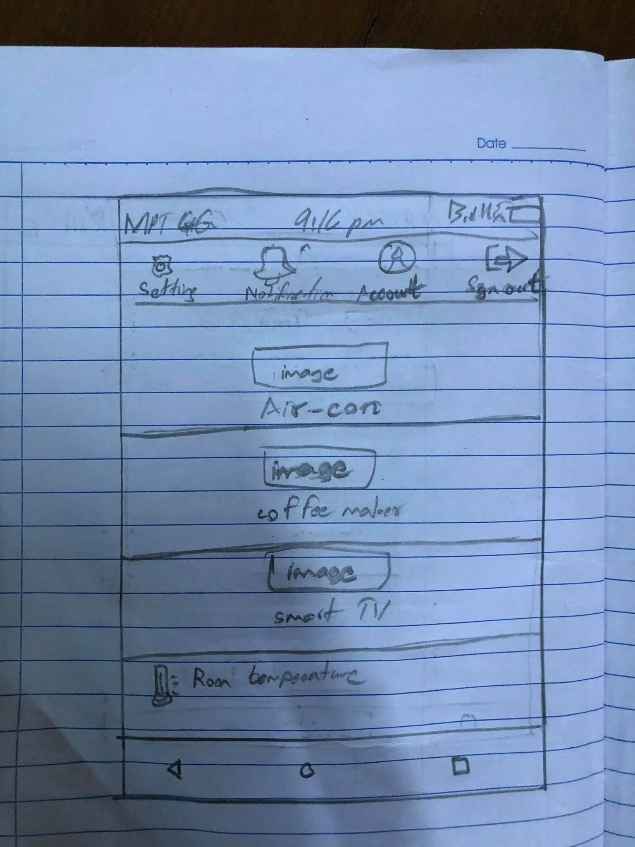 Date
MPT 4G 9:16 pm
Setting Notification Account Sign out
image
Air-con
image
coffee maker
image
smart TV
: Room temperature